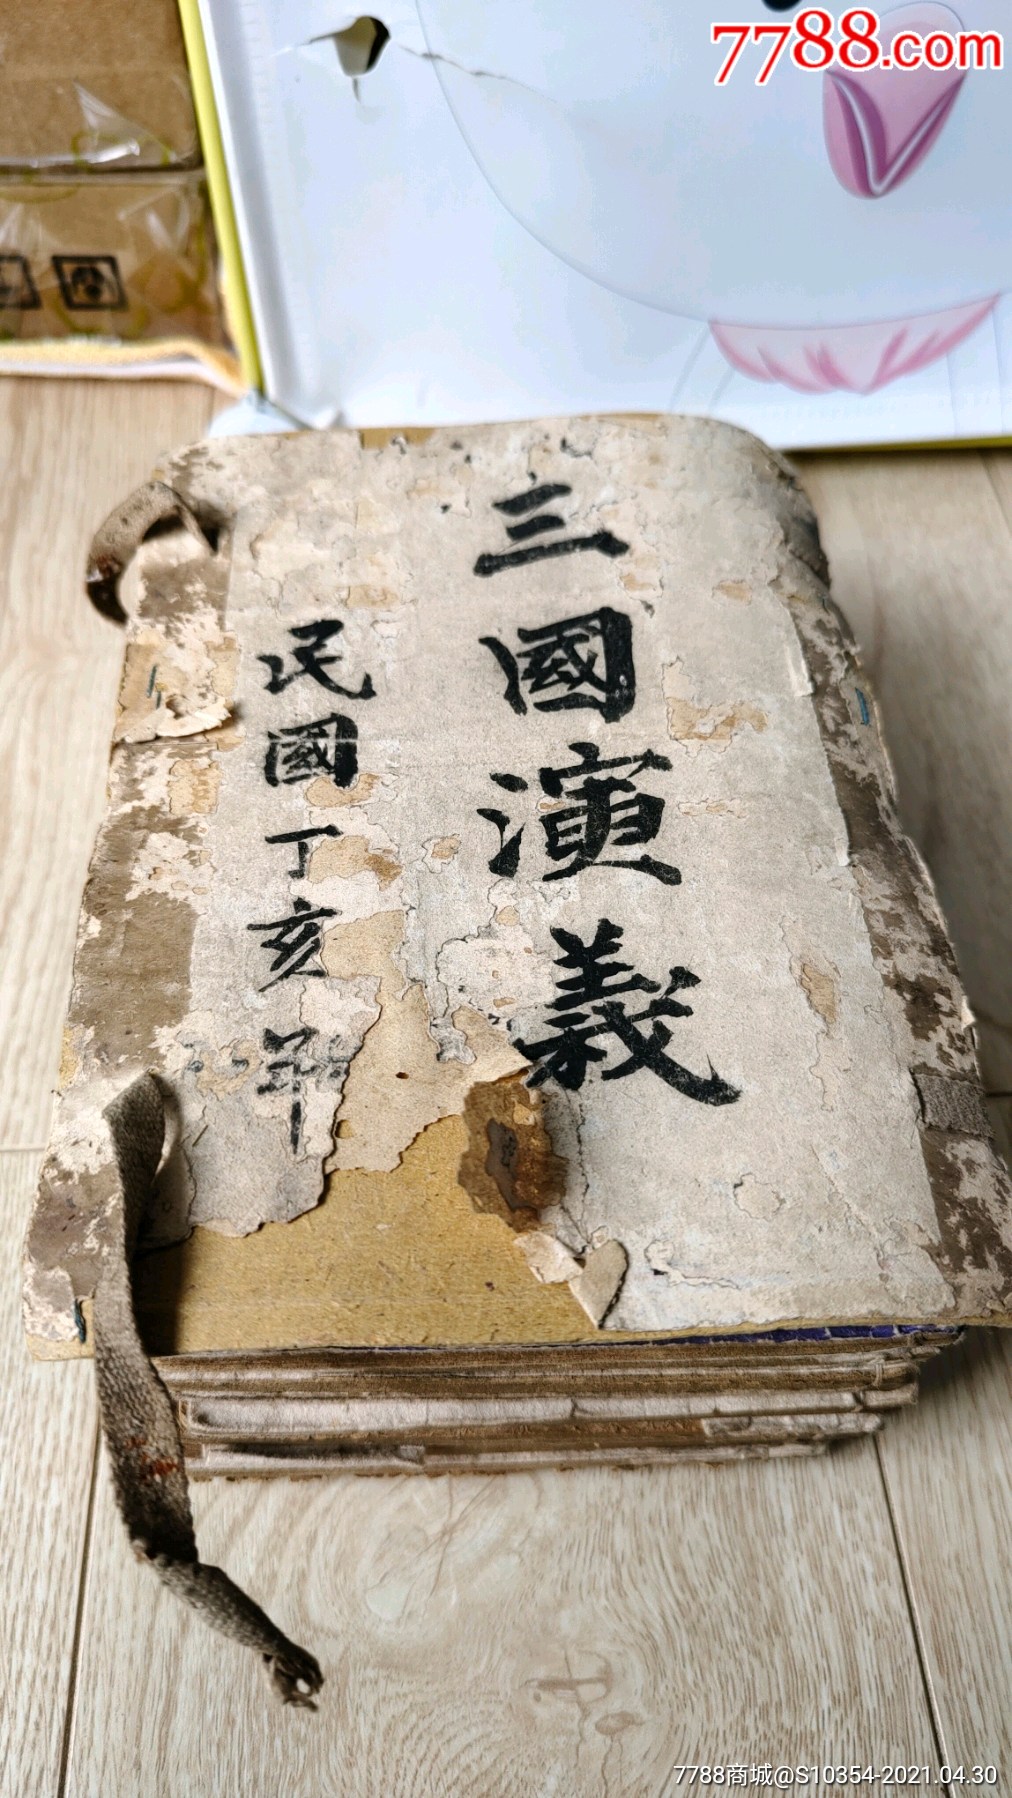 7788.com
三國演義
民國丁亥年
7788商城@S10354-2021.04.30